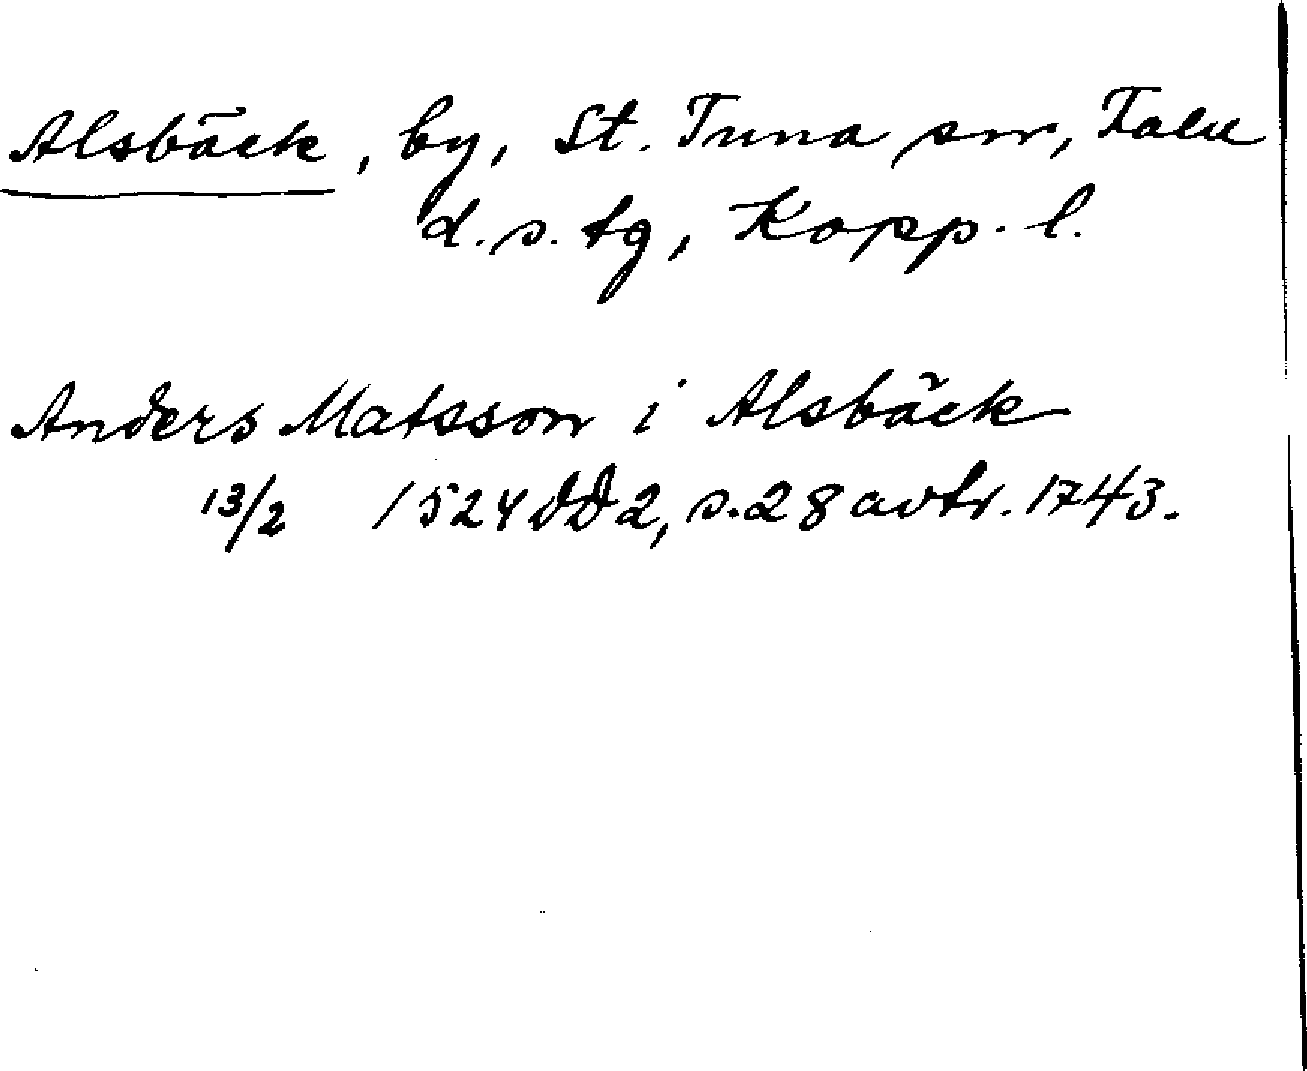 Alsbäck, by, St. Tuna sn, Falu
d.s. tg, Kopp. l.
Anders Matsson i Alsbäck
13/2 1524 DD 2, s. 28 avtr. 1743.